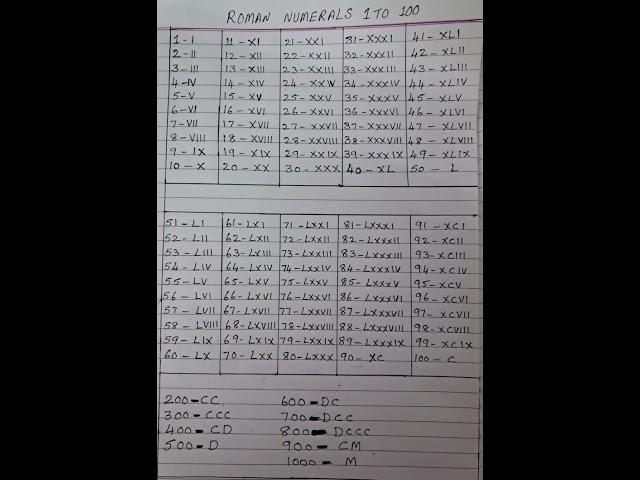 ROMAN NUMERALS 1 TO 100
1-I 11-XI 21-XXI 31-XXXI 41-XLI
2-II 12-XII 22-XXII 32-XXXII 42-XLII
3-III 13-XIII 23-XXIII 33-XXXIII 43-XLIII
4-IV 14-XIV 24-XXIV 34-XXXIV 44-XLIV
5-V 15-XV 25-XXV 35-XXXV 45-XLV
6-VI 16-XVI 26-XXVI 36-XXXVI 46-XLVI
7-VII 17-XVII 27-XXVII 37-XXXVII 47-XLVII
8-VIII 18-XVIII 28-XXVIII 38-XXXVIII 48-XLVIII
9-IX 19-XIX 29-XXIX 39-XXXIX 49-XLIX
10-X 20-XX 30-XXX 40-XL 50-L
51-LI 61-LXI 71-LXXI 81-LXXXI 91-XCI
52-LII 62-LXII 72-LXXII 82-LXXXII 92-XCII
53-LIII 63-LXIII 73-LXXIII 83-LXXXIII 93-XCIII
54-LIV 64-LXIV 74-LXXIV 84-LXXXIV 94-XCIV
55-LV 65-LXV 75-LXXV 85-LXXXV 95-XCV
56-LVI 66-LXVI 76-LXXVI 86-LXXXVI 96-XCVI
57-LVII 67-LXVII 77-LXXVII 87-LXXXVII 97-XCVII
58-LVIII 68-LXVIII 78-LXXVIII 88-LXXXVIII 98-XCVIII
59-LIX 69-LXIX 79-LXXIX 89-LXXXIX 99-XCIX
60-LX 70-LXX 80-LXXX 90-XC 100-C
200-CC 600-DC
300-CCC 700-DCC
400-CD 800-DCCC
500-D 900-CM
1000-M